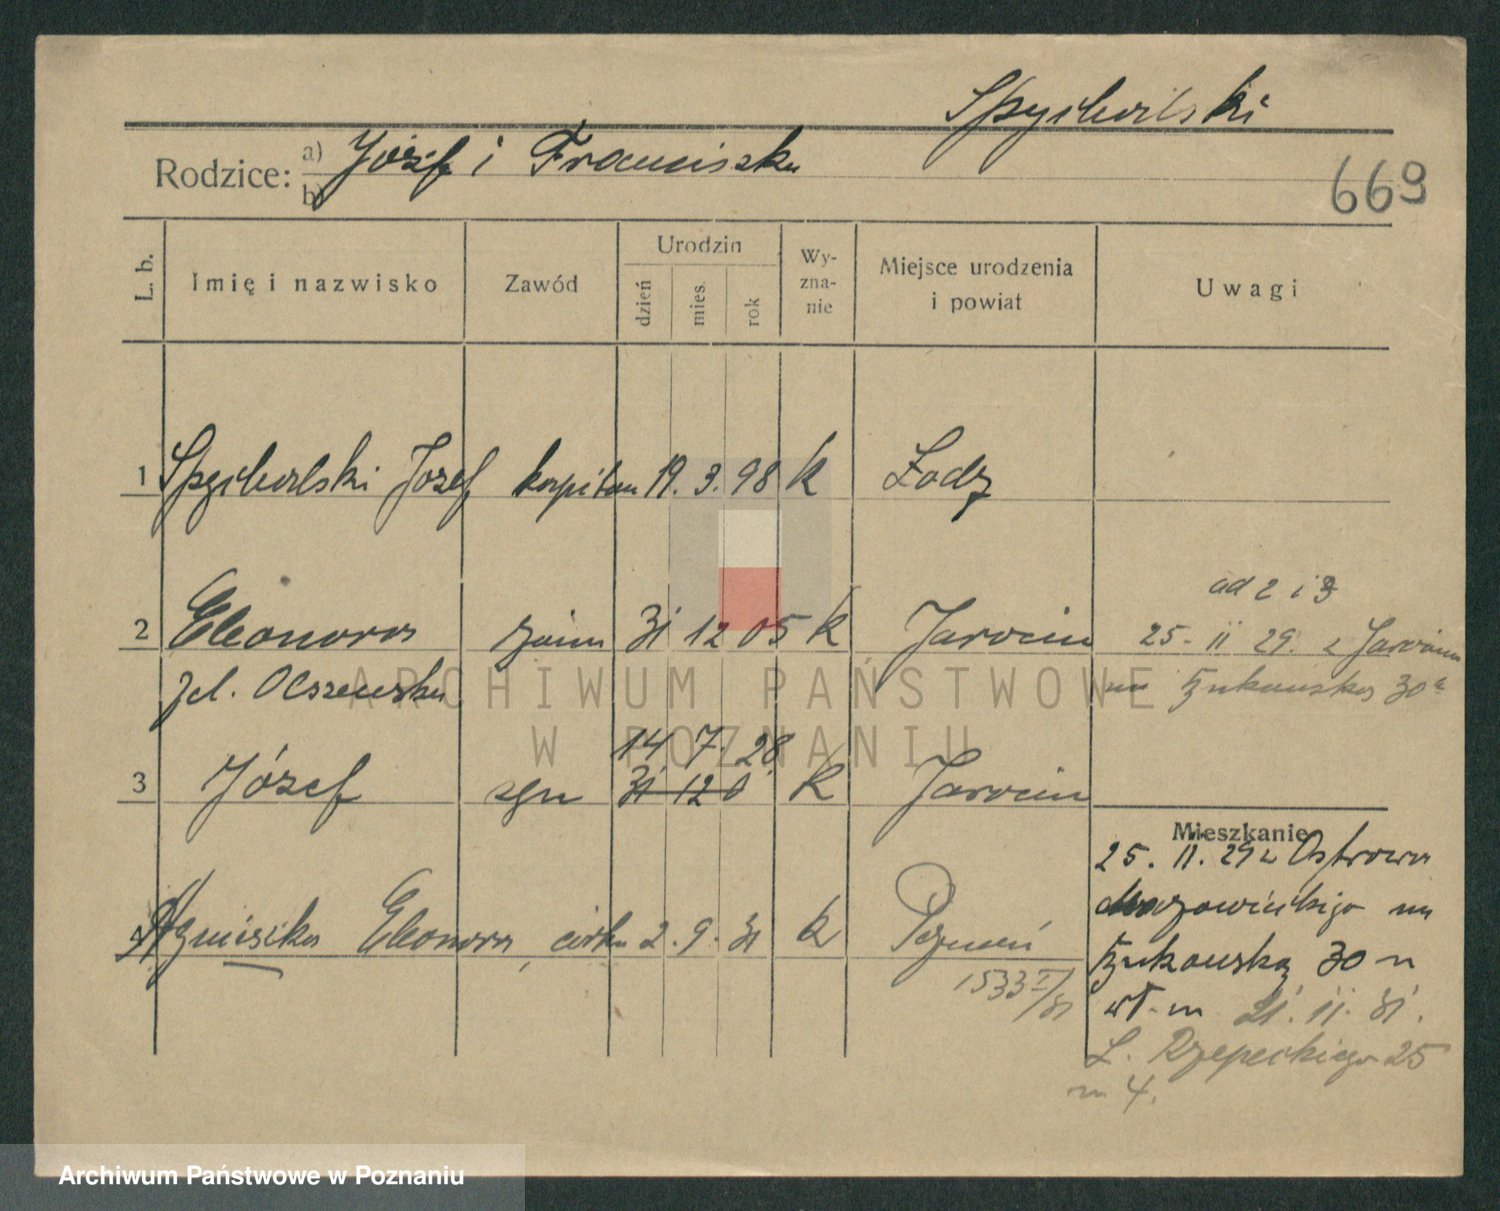 Spychalski
Rodzice: a) Józef i Franciszka
b)
669
L. b.
Imię i nazwisko
Zawód
Urodzin
dzień
mies.
rok
Wy-
zna-
nie
Miejsce urodzenia
i powiat
Uwagi
1 Spychalski Józef kapitan 19. 3. 98 k Łodz
ad 2 i 3
2 Eleonora żona 31 12 05 k Jarocin
25- 11 29. z Jarocina
żel. Olszewska
na Żukowską 30a
14 7. 28.
3 Józef syn 31 12 0 k Jarocin
Mieszkanie
25. 11. 29 z Ostrowa
Mazowieckiego na
Żukowską 30
21. 11. 31.
4 Agnieszka Eleonora, córka 2. 9. 31 k Poznań
1533 I/31
Ł. Rzepeckiego 25
m 4.
ARCHIWUM PAŃSTWOWE
W POZNANIU
Archiwum Państwowe w Poznaniu